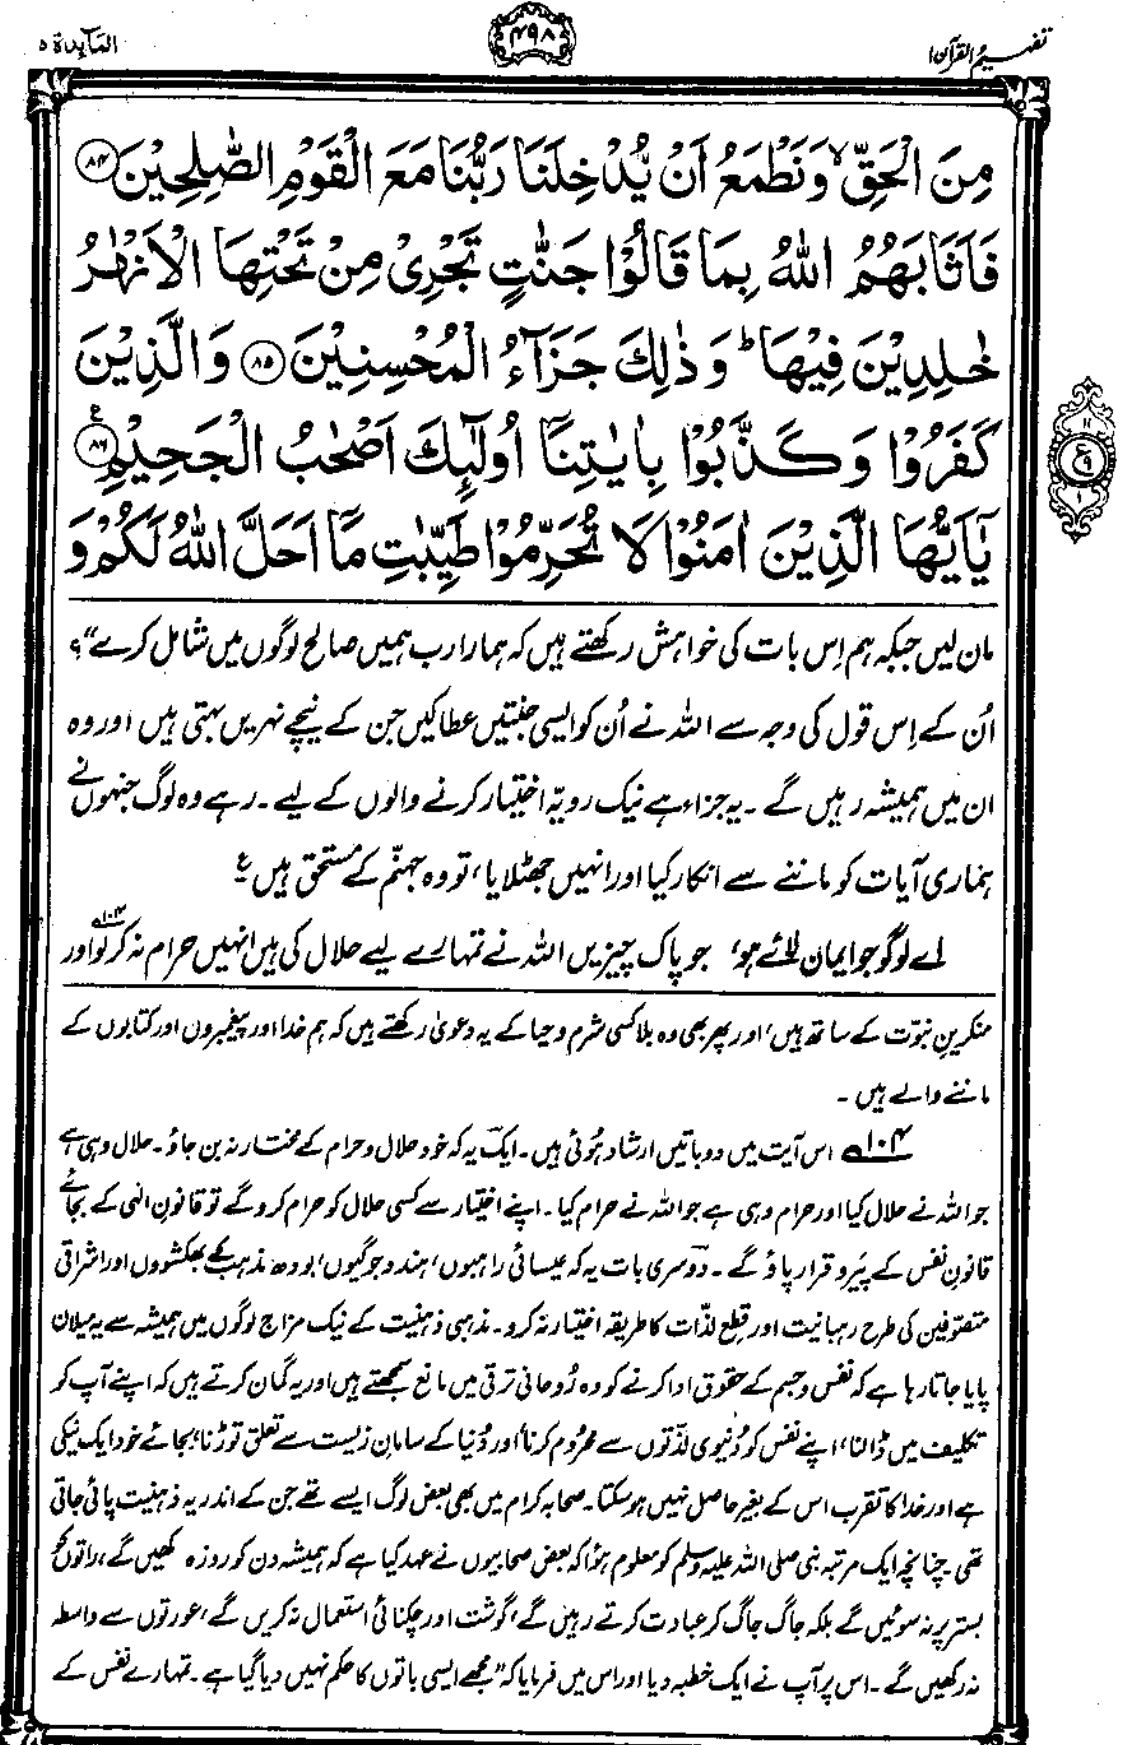 تفہیم القرآن ۱
۴۹۸
المآئدۃ ۵
مِنَ الْحَقِّ ۙ وَنَطْمَعُ اَنْ یُّدْخِلَنَا رَبُّنَا مَعَ الْقَوْمِ الصّٰلِحِیْنَ ۸۴
فَاَثَابَهُمُ اللّٰهُ بِمَا قَالُوْا جَنّٰتٍ تَجْرِیْ مِنْ تَحْتِهَا الْاَنْهٰرُ
خٰلِدِیْنَ فِیْهَا ؕ وَذٰلِكَ جَزَآءُ الْمُحْسِنِیْنَ ۸۵ وَالَّذِیْنَ
كَفَرُوْا وَكَذَّبُوْا بِاٰیٰتِنَاۤ اُولٰٓئِكَ اَصْحٰبُ الْجَحِیْمِ ۸۶ ع
۱۱
ع ۹
۱
یٰۤاَیُّهَا الَّذِیْنَ اٰمَنُوْا لَا تُحَرِّمُوْا طَیِّبٰتِ مَاۤ اَحَلَّ اللّٰهُ لَكُمْ وَ
مان لیں جبکہ ہم اِس بات کی خواہش رکھتے ہیں کہ ہمارا رب ہمیں صالح لوگوں میں شامل کرے"؟
اُن کے اِس قول کی وجہ سے اللہ نے اُن کو ایسی جنتیں عطا کیں جن کے نیچے نہریں بہتی ہیں اور وہ
ان میں ہمیشہ رہیں گے ۔ یہ جزاء ہے نیک رویّہ اختیار کرنے والوں کے لیے ۔ رہے وہ لوگ جنہوں نے
ہماری آیات کو ماننے سے انکار کیا اور انہیں جھٹلایا، تو وہ جہنّم کے مستحق ہیں ع
اے لوگو جو ایمان لائے ہو، جو پاک چیزیں اللہ نے تمہارے لیے حلال کی ہیں انہیں حرام نہ کر لو ۱۰۴ اور
منکرینِ نبوّت کے ساتھ ہیں، اور پھر بھی وہ بلا کسی شرم و حیا کے یہ دعویٰ رکھتے ہیں کہ ہم خدا اور پیغمبروں اور کتابوں کے
ماننے والے ہیں ۔
۱۰۴ اس آیت میں دو باتیں ارشاد ہوئی ہیں ۔ ایک یہ کہ خود حلال و حرام کے مختار نہ بن جاؤ ۔ حلال وہی ہے
جو اللہ نے حلال کیا اور حرام وہی ہے جو اللہ نے حرام کیا ۔ اپنے اختیار سے کسی حلال کو حرام کرو گے تو قانونِ الٰہی کے بجائے
قانونِ نفس کے پَیرو قرار پاؤ گے ۔ دوسری بات یہ کہ عیسائی راہبوں، ہندو جوگیوں، بودھ مذہب کے بھکشووں اور اشراقی
متصوّفین کی طرح رہبانیت اور قطعِ لذّات کا طریقہ اختیار نہ کرو ۔ مذہبی ذہنیت کے نیک مزاج لوگوں میں ہمیشہ سے یہ میلان
پایا جاتا رہا ہے کہ نفس و جسم کے حقوق ادا کرنے کو وہ رُوحانی ترقی میں مانع سمجھتے ہیں اور یہ گمان کرتے ہیں کہ اپنے آپ کو
تکلیف میں ڈالنا، اپنے نفس کو دُنیوی لذّتوں سے محروم کرنا، اور دُنیا کے سامانِ زیست سے تعلق توڑنا، بجائے خود ایک نیکی
ہے اور خدا کا تقرب اس کے بغیر حاصل نہیں ہو سکتا ۔ صحابہ کرام میں بھی بعض لوگ ایسے تھے جن کے اندر یہ ذہنیت پائی جاتی
تھی ۔ چنانچہ ایک مرتبہ نبی صلی اللہ علیہ وسلم کو معلوم ہؤا کہ بعض صحابیوں نے عہد کیا ہے کہ ہمیشہ دن کو روزہ رکھیں گے، راتوں کو
بستر پر نہ سوئیں گے بلکہ جاگ جاگ کر عبادت کرتے رہیں گے، گوشت اور چکنائی استعمال نہ کریں گے، عورتوں سے واسطہ
نہ رکھیں گے ۔ اس پر آپ نے ایک خطبہ دیا اور اس میں فرمایا کہ "مجھے ایسی باتوں کا حکم نہیں دیا گیا ہے ۔ تمہارے نفس کے